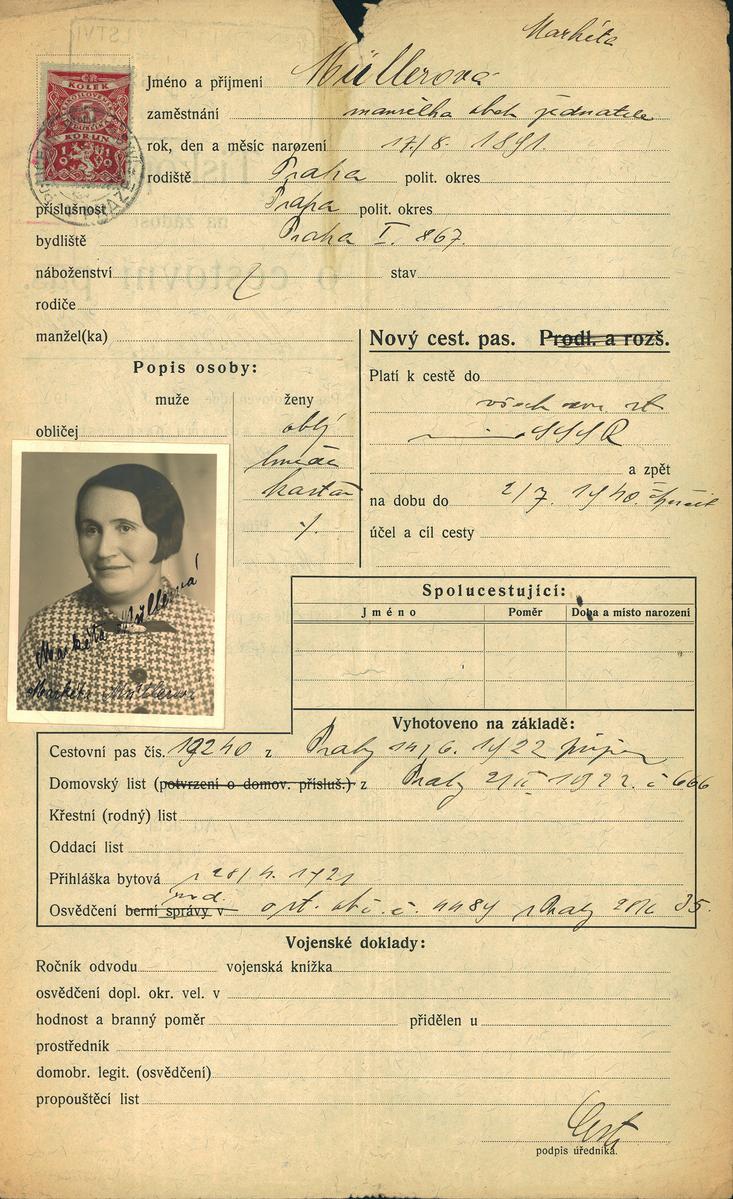 Markéta
Jméno a příjmení Müllerová
KOLEK
KORUN
zaměstnání manželka obch jednatele
rok, den a měsíc narození 17/8. 1891.
rodiště Praha polit. okres
příslušnost Praha polit. okres
bydliště Praha I. 867.
náboženství stav
rodiče
manžel(ka)
Nový cest. pas. Prodl. a rozš.
Popis osoby:
Platí k cestě do
muže ženy
všech
obličej oblý
SSSR
hnědé
kaštan
a zpět
na dobu do 2/7. 1940.
účel a cíl cesty
Spolucestující:
Jméno Poměr Doba a místo narození
Markéta Müllerová
Markéta Müllerová
Vyhotoveno na základě:
Cestovní pas čís. 19240 z Prahy 14/6. 1922
Domovský list (potvrzení o domov. přísluš.) z Prahy 21/II 1922. č 666
Křestní (rodný) list
Oddací list
Přihláška bytová z 28/4. 1921
Osvědčení berní správy v č. 4484 z Prahy 35.
Vojenské doklady:
Ročník odvodu vojenská knížka
osvědčení dopl. okr. vel. v
hodnost a branný poměr přidělen u
prostředník
domobr. legit. (osvědčení)
propouštěcí list
podpis úředníka.